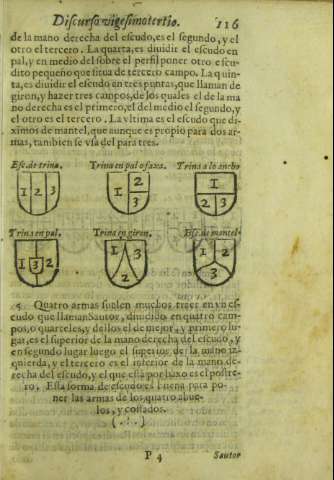 Discurso vigesimotertio. 116
de la mano derecha del escudo, es el segundo, y el
otro el tercero. La quarta, es diuidir el escudo en
pal, y en medio del sobre el perfil poner otro escu-
dito pequeño que situa de tercero campo. La quin-
ta, es diuidir el escudo en tres puntas, que llaman de
giron, y hazer tres campos, de los quales el de la ma
no derecha es el primero, el del medio el segundo, y
el otro es el tercero. La vltima es el escudo que di-
ximos de mantel, que aunque es propio para dos ar-
mas, tambien se vsa del para tres.
Esc. de trina. Trina en pal o faxa. Trina a lo ancho
1 2 3
1 2 3
1 2 3
Trina en pal. Trina en giron. Esc. de mantel.
1 3 2
1 3 2
1 2 3
4 Quatro armas suelen muchos traer en vn es-
cudo que llaman Sautor, diuidido en quatro cam-
pos, o quarteles, y dellos el de mejor, y primero lu-
gar, es el superior de la mano derecha del escudo, y
en segundo lugar luego el superior de la mano iz-
quierda, y el tercero es el inferior de la mano de-
recha del escudo, y el que esta por baxo es el postre-
ro. Esta forma de escudo es buena para po-
ner las armas de los quatro abue-
los, y costados.
(.?.)
P 4 Sautor